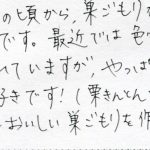 の頃から、巣ごもり
です。最近では色
ていますが、やっぱ
好きです!(栗きんとん
おいしい巣ごもりを作